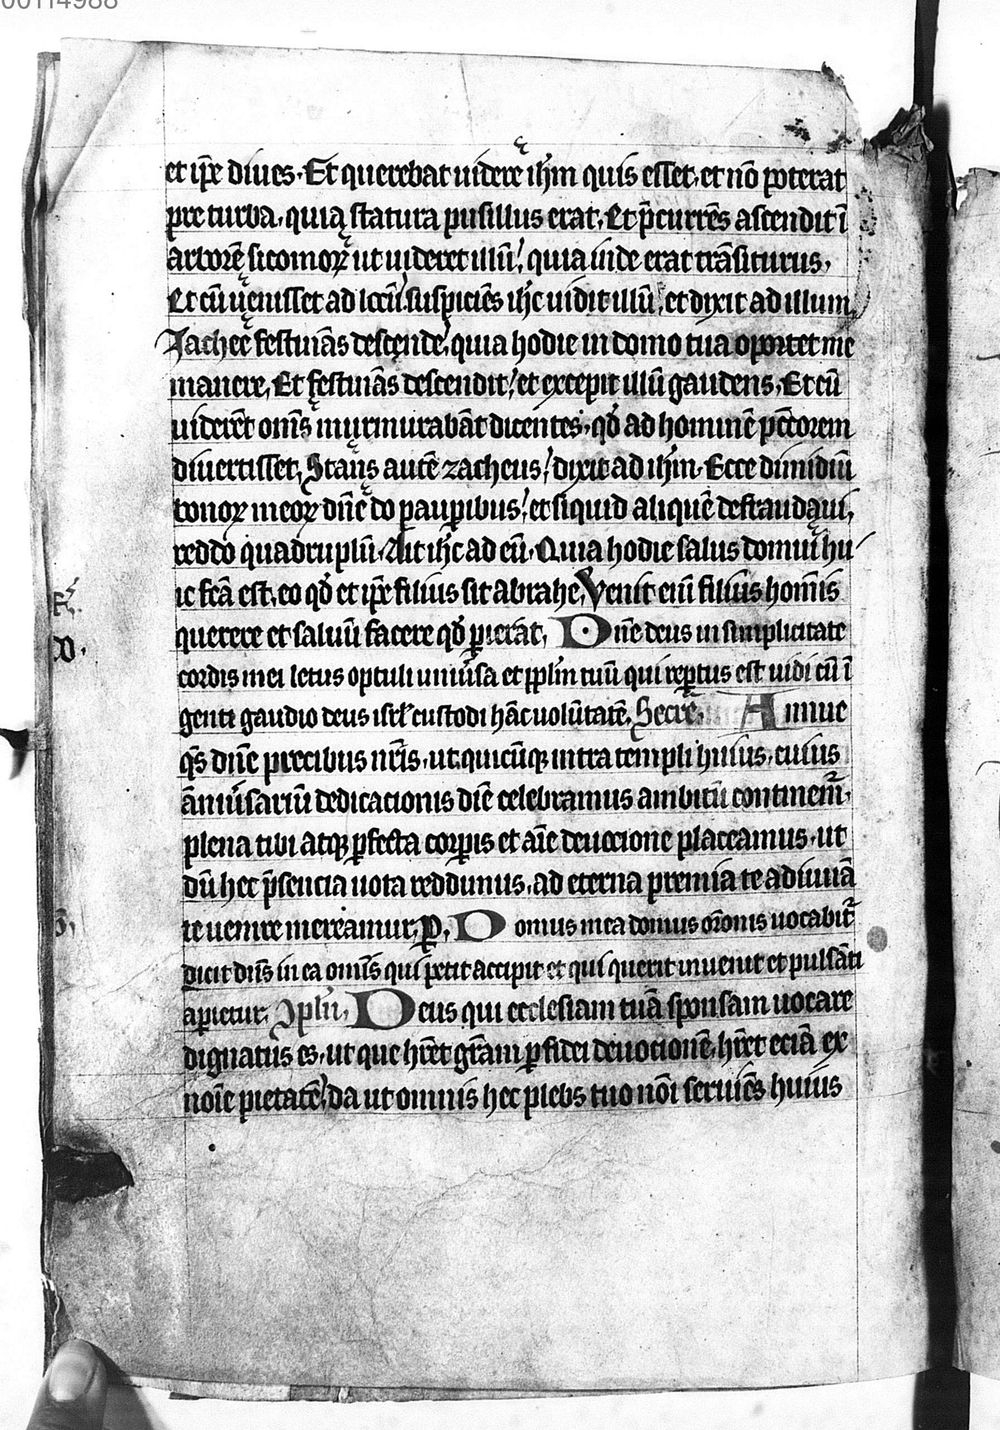 00114988
et ip̄e diues. Et querebat uidere ih̄m quis esset. et nō poterat
pre turba. quia statura pusillus erat. Et p̄currēs ascendit ī
arborē sicomoꝝ ut uideret illū. quia inde erat trāsiturus.
Et cū uenisset ad locū suspiciēs ih̄c uidit illū et dixit ad illum
Zachee festinās descende. quia hodie in domo tua oportet me
manere. Et festinās descendit. et excepit illū gaudens. Et cū
uiderēt om̄s murmurabāt dicentes. qd̓ ad hominē pctōrem
diuertisset. Stans autē zacheus. dixit ad ih̄m. Ecce dimidiū
bonoꝝ meoꝝ dn̄e do paupibus. et siquid aliquē defraudaui.
reddo quadruplū. Ait ih̄c ad eū. Quia hodie salus domui hu
ic fcā est. eo qd̓ et ip̄e filius sit abrahe. Venit eni filius homīs
querere et saluū facere qd̓ pierat. Dn̄e deus in simplicitate
cordis mei letus optuli uniūsa et pp̄lm tuū qui reptus est uidi cū ī
genti gaudio deus isrl̄ custodi hāc uolūtatē. Secre. Annue
qs̄ dn̄e precibus nr̄is. ut quicūqꝫ intra templi huius. cuius
āniūsariū dedicacionis diē celebramus ambitū continem̄.
plena tibi atqꝫ pfecta corpis et aīe deuocione placeamus. ut
dū hec p̄sencia uota reddimus. ad eterna premia te adiuuā
te uenire mereamur. P. Domus mea domus or̄onis uocabit̄
dicit dn̄s in ea omīs qui petit accipit et qui querit inuenit et pulsāti
apietur. Deus qui ecclesiam tuā sponsam uocare
dignatus es. ut que hr̄et gr̄am p fidei deuotionē. hr̄et eciā ex
noīe pietatē. da ut omnis hec plebs tuo nōi seruiēs huius